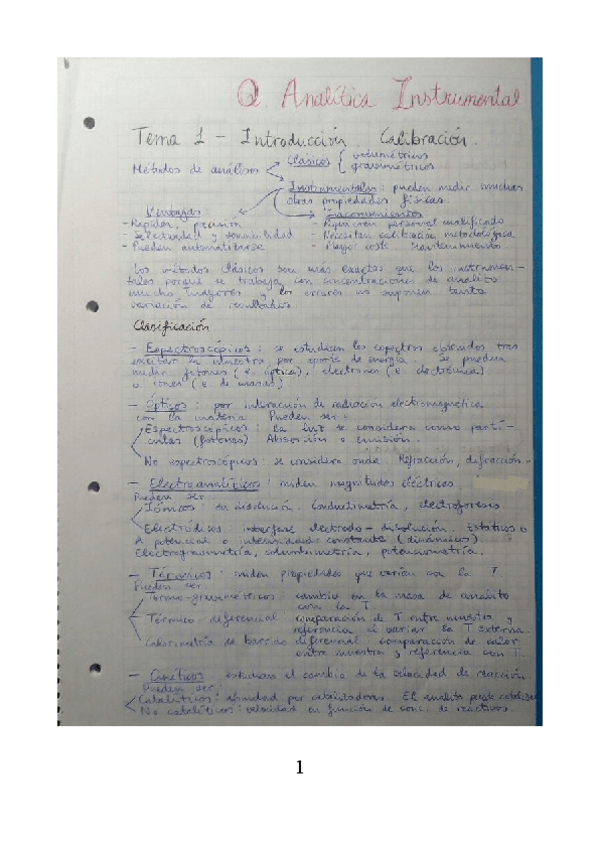 Q. Analítica Instrumental
Tema 1 - Introducción. Calibración.
Métodos de análisis
Clásicos { volumétricos
gravimétricos
Instrumentales: pueden medir muchas
otras propiedades físicas.
Ventajas
- Rápidos, precisión
- Selectividad y sensibilidad
- Pueden automatizarse
Inconvenientes
- Requieren personal cualificado
- Necesitan calibración metodológica
- Mayor coste mantenimiento
Los métodos clásicos son más exactos que los instrumen-
tales porque se trabaja con concentraciones de analito
mucho mayores y los errores no suponen tanta
variación de resultados.
Clasificación
- Espectroscópicos: se estudian los espectros obtenidos tras
excitar la muestra por aporte de energía. Se pueden
medir fotones (e. óptica), electrones (e. electrónica)
o iones (e. de masas)
- Ópticos: por interacción de radiación electromagnética
con la materia. Pueden ser:
Espectroscópicos: la luz se considera como partí-
culas (fotones) Absorción o emisión.
No espectroscópicos: se considera onda. Refracción, difracción.
- Electroanalíticos: miden magnitudes eléctricas.
Pueden ser
Iónicos: en disolución. Conductimetría, electroforesis
Electródicos: interfase electrodo-disolución. Estáticos o
A potencial o intensidad constante (dinámicos)
Electrogravimetría, coulombimetría, potenciometría.
- Térmicos: miden propiedades que varían con la T.
Pueden ser
Termo-gravimétricos: cambio en la masa de analito
con la T
Térmico diferencial comparación de T entre muestra y
referencia al variar la T externa.
Calorimetría de barrido diferencial: comparación de calor
entre muestra y referencia con T.
- Cinéticos estudian el cambio de la velocidad de reacción.
Pueden ser:
Catalíticos: velocidad por catalizadores. El analito puede catalizar
No catalíticos: velocidad en función de conc. de reactivos.
1